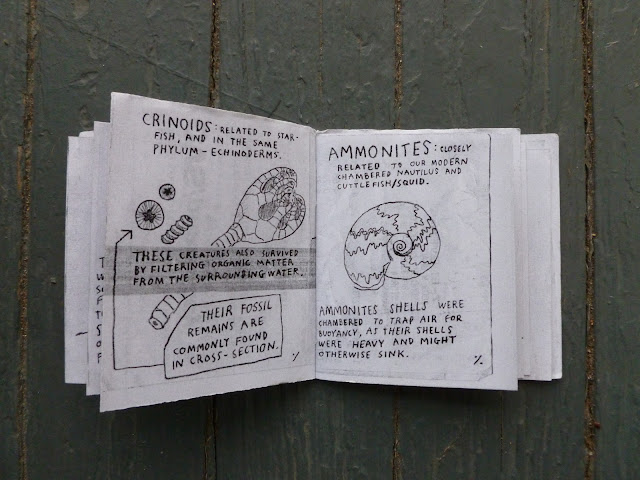 CRINOIDS: RELATED TO STAR-
FISH, AND IN THE SAME
PHYLUM - ECHINODERMS.
THESE CREATURES ALSO SURVIVED
BY FILTERING ORGANIC MATTER
FROM THE SURROUNDING WATER.
THEIR FOSSIL
REMAINS ARE
COMMONLY FOUND
IN CROSS-SECTION.
AMMONITES: CLOSELY
RELATED TO OUR MODERN
CHAMBERED NAUTILUS AND
CUTTLEFISH/SQUID.
AMMONITES SHELLS WERE
CHAMBERED TO TRAP AIR FOR
BUOYANCY, AS THEIR SHELLS
WERE HEAVY AND MIGHT
OTHERWISE SINK.